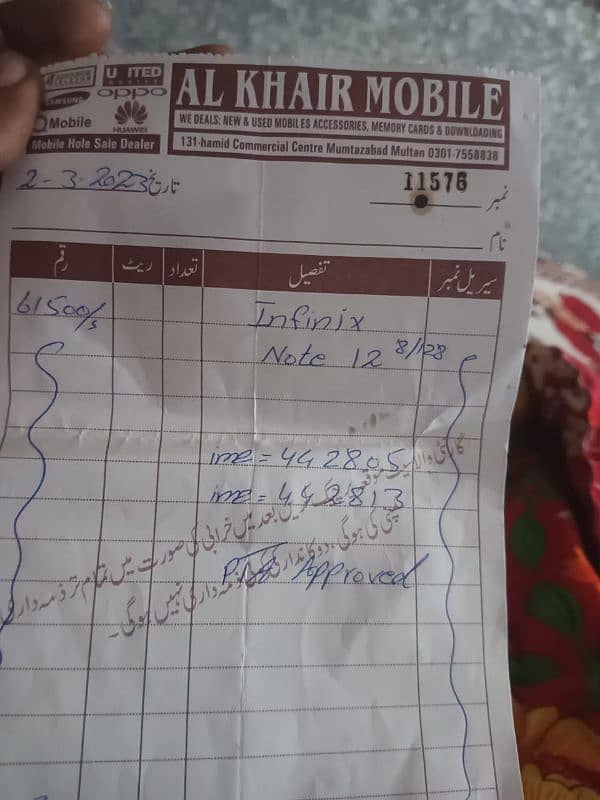 UNITED
MOBILE
SAMSUNG
oppo
QMobile
HUAWEI
Mobile Hole Sale Dealer
AL KHAIR MOBILE
WE DEALS: NEW & USED MOBILES ACCESSORIES, MEMORY CARDS & DOWNLOADING
131-hamid Commercial Centre Mumtazabad Multan 0301-7558838
تاریخ 2-3-2023
نمبر 11576
نام
سیریل نمبر تفصیل تعداد ریٹ رقم
Infinix 61500/s
Note 12 8/128
ime = 442805
ime = 442813
PTA Approved
بعد میں خرابی کی صورت میں تمام تر ذمہ داری
کمپنی کی ہوگی، دوکاندار کی ذمہ داری نہیں ہوگی۔